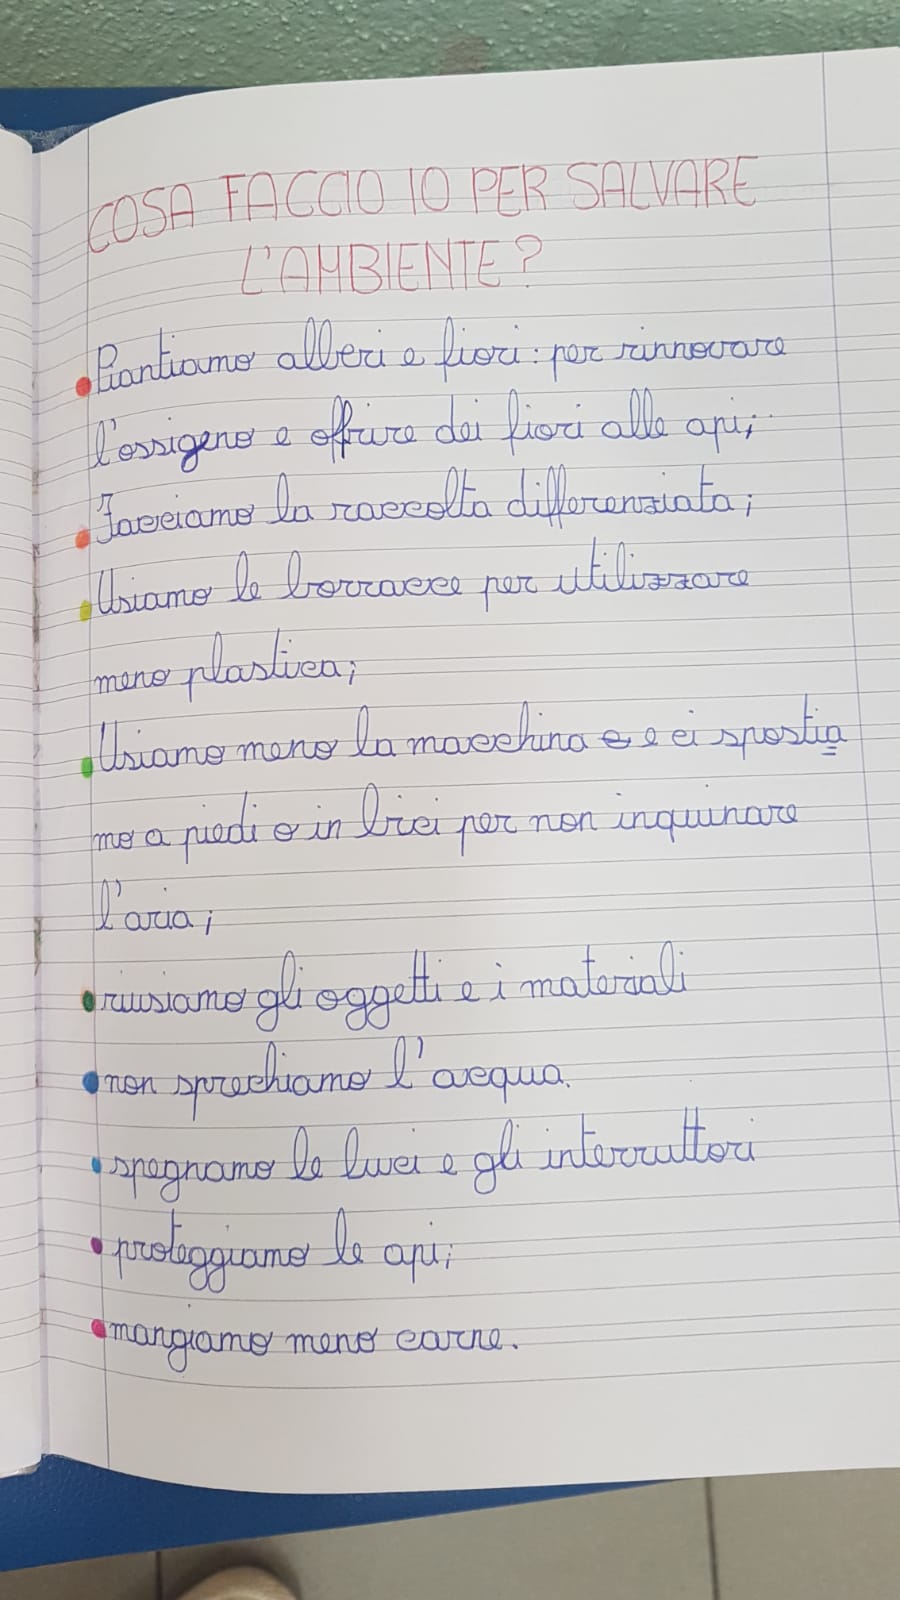 COSA FACCIO IO PER SALVARE
L'AMBIENTE?
Piantiamo alberi e fiori: per rinnovare
l'ossigeno e offrire dei fiori alle api;
Facciamo la raccolta differenziata;
Usiamo le borracce per utilizzare
meno plastica;
Usiamo meno la macchina e e ci spostia
mo a piedi o in bici per non inquinare
l'aria;
riusiamo gli oggetti e i materiali
non sprechiamo l'acqua.
spegnamo le luci e gli interruttori
proteggiamo le api;
mangiamo meno carne.